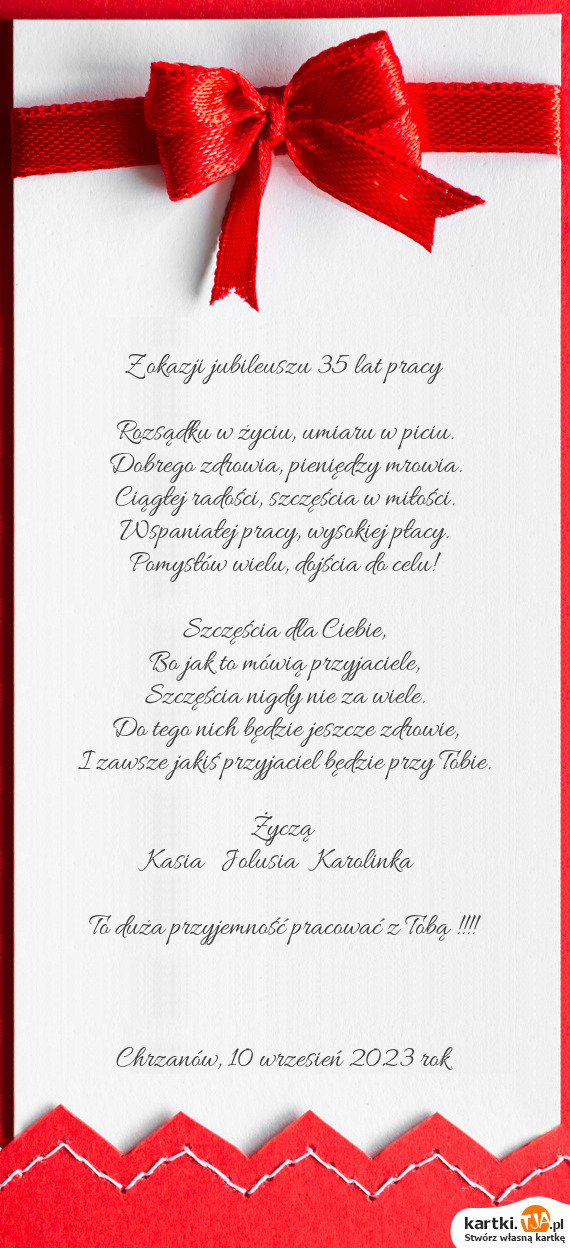 Z okazji jubileuszu 35 lat pracy
Rozsądku w życiu, umiaru w piciu.
Dobrego zdrowia, pieniędzy mrowia.
Ciągłej radości, szczęścia w miłości.
Wspaniałej pracy, wysokiej płacy.
Pomysłów wielu, dojścia do celu!
Szczęścia dla Ciebie,
Bo jak to mówią przyjaciele,
Szczęścia nigdy nie za wiele.
Do tego nich będzie jeszcze zdrowie,
I zawsze jakiś przyjaciel będzie przy Tobie.
Życzą
Kasia Jolusia Karolinka
To duża przyjemność pracować z Tobą !!!!
Chrzanów, 10 wrzesień 2023 rok
kartki.TJA.pl
Stwórz własną kartkę